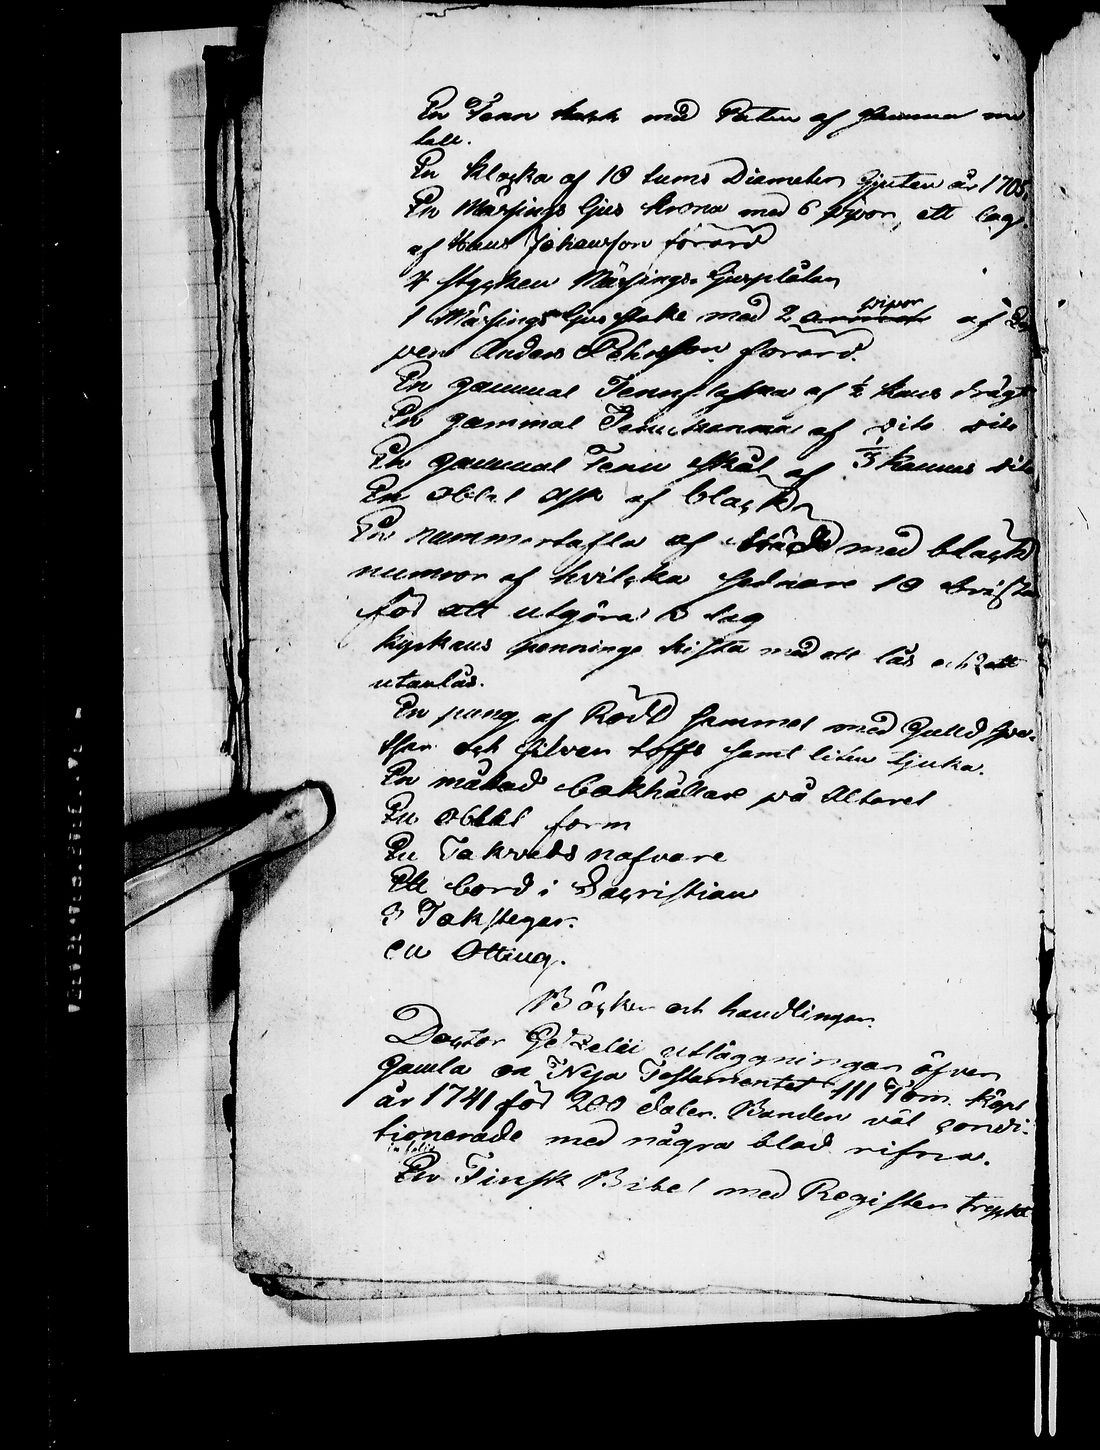 En Tenn kalk med Paten af samma me
tall.
En klocka af 10 tums Diameter gjuten år 1705.
En Mässings ljus krona med 6 pipor, ett lag
af Hans Johansson förärd
4 stycken Mässings ljusplåtar
1 Mässings ljus stake med 2 pipor af
Anders förärd.
En gammal Tennflaska af ½ kans drägt
En gammal Tennkanna af dito dito
En gammal Tenn skål af kannas dito
En oblat ask af bläck
En nummertafla af bräde med bläck
numror af hvilka sednare 10 brista
för att utgöra 3 lag
kyrkans penninge kista med ett lås och 2 ett
utanlås.
En pung af Rödt sammet med Guld spe-
tsar och silver toffs samt liten ljuka.
En målad bokhållare på Altaret
En oblat form
En Takveds nafvare
Ett bord i Sacristian
3 Takstegar.
en Otting.
Böcker och handlingar.
Doctor Gezelii utläggningar öfver
Gamla oa Nya Testamentet III Tom. köpt
år 1741 för 200 daler. Banden väl condi-
tionerade med några blad rifna.
in folio
En Finsk Bibel med Register tryckt